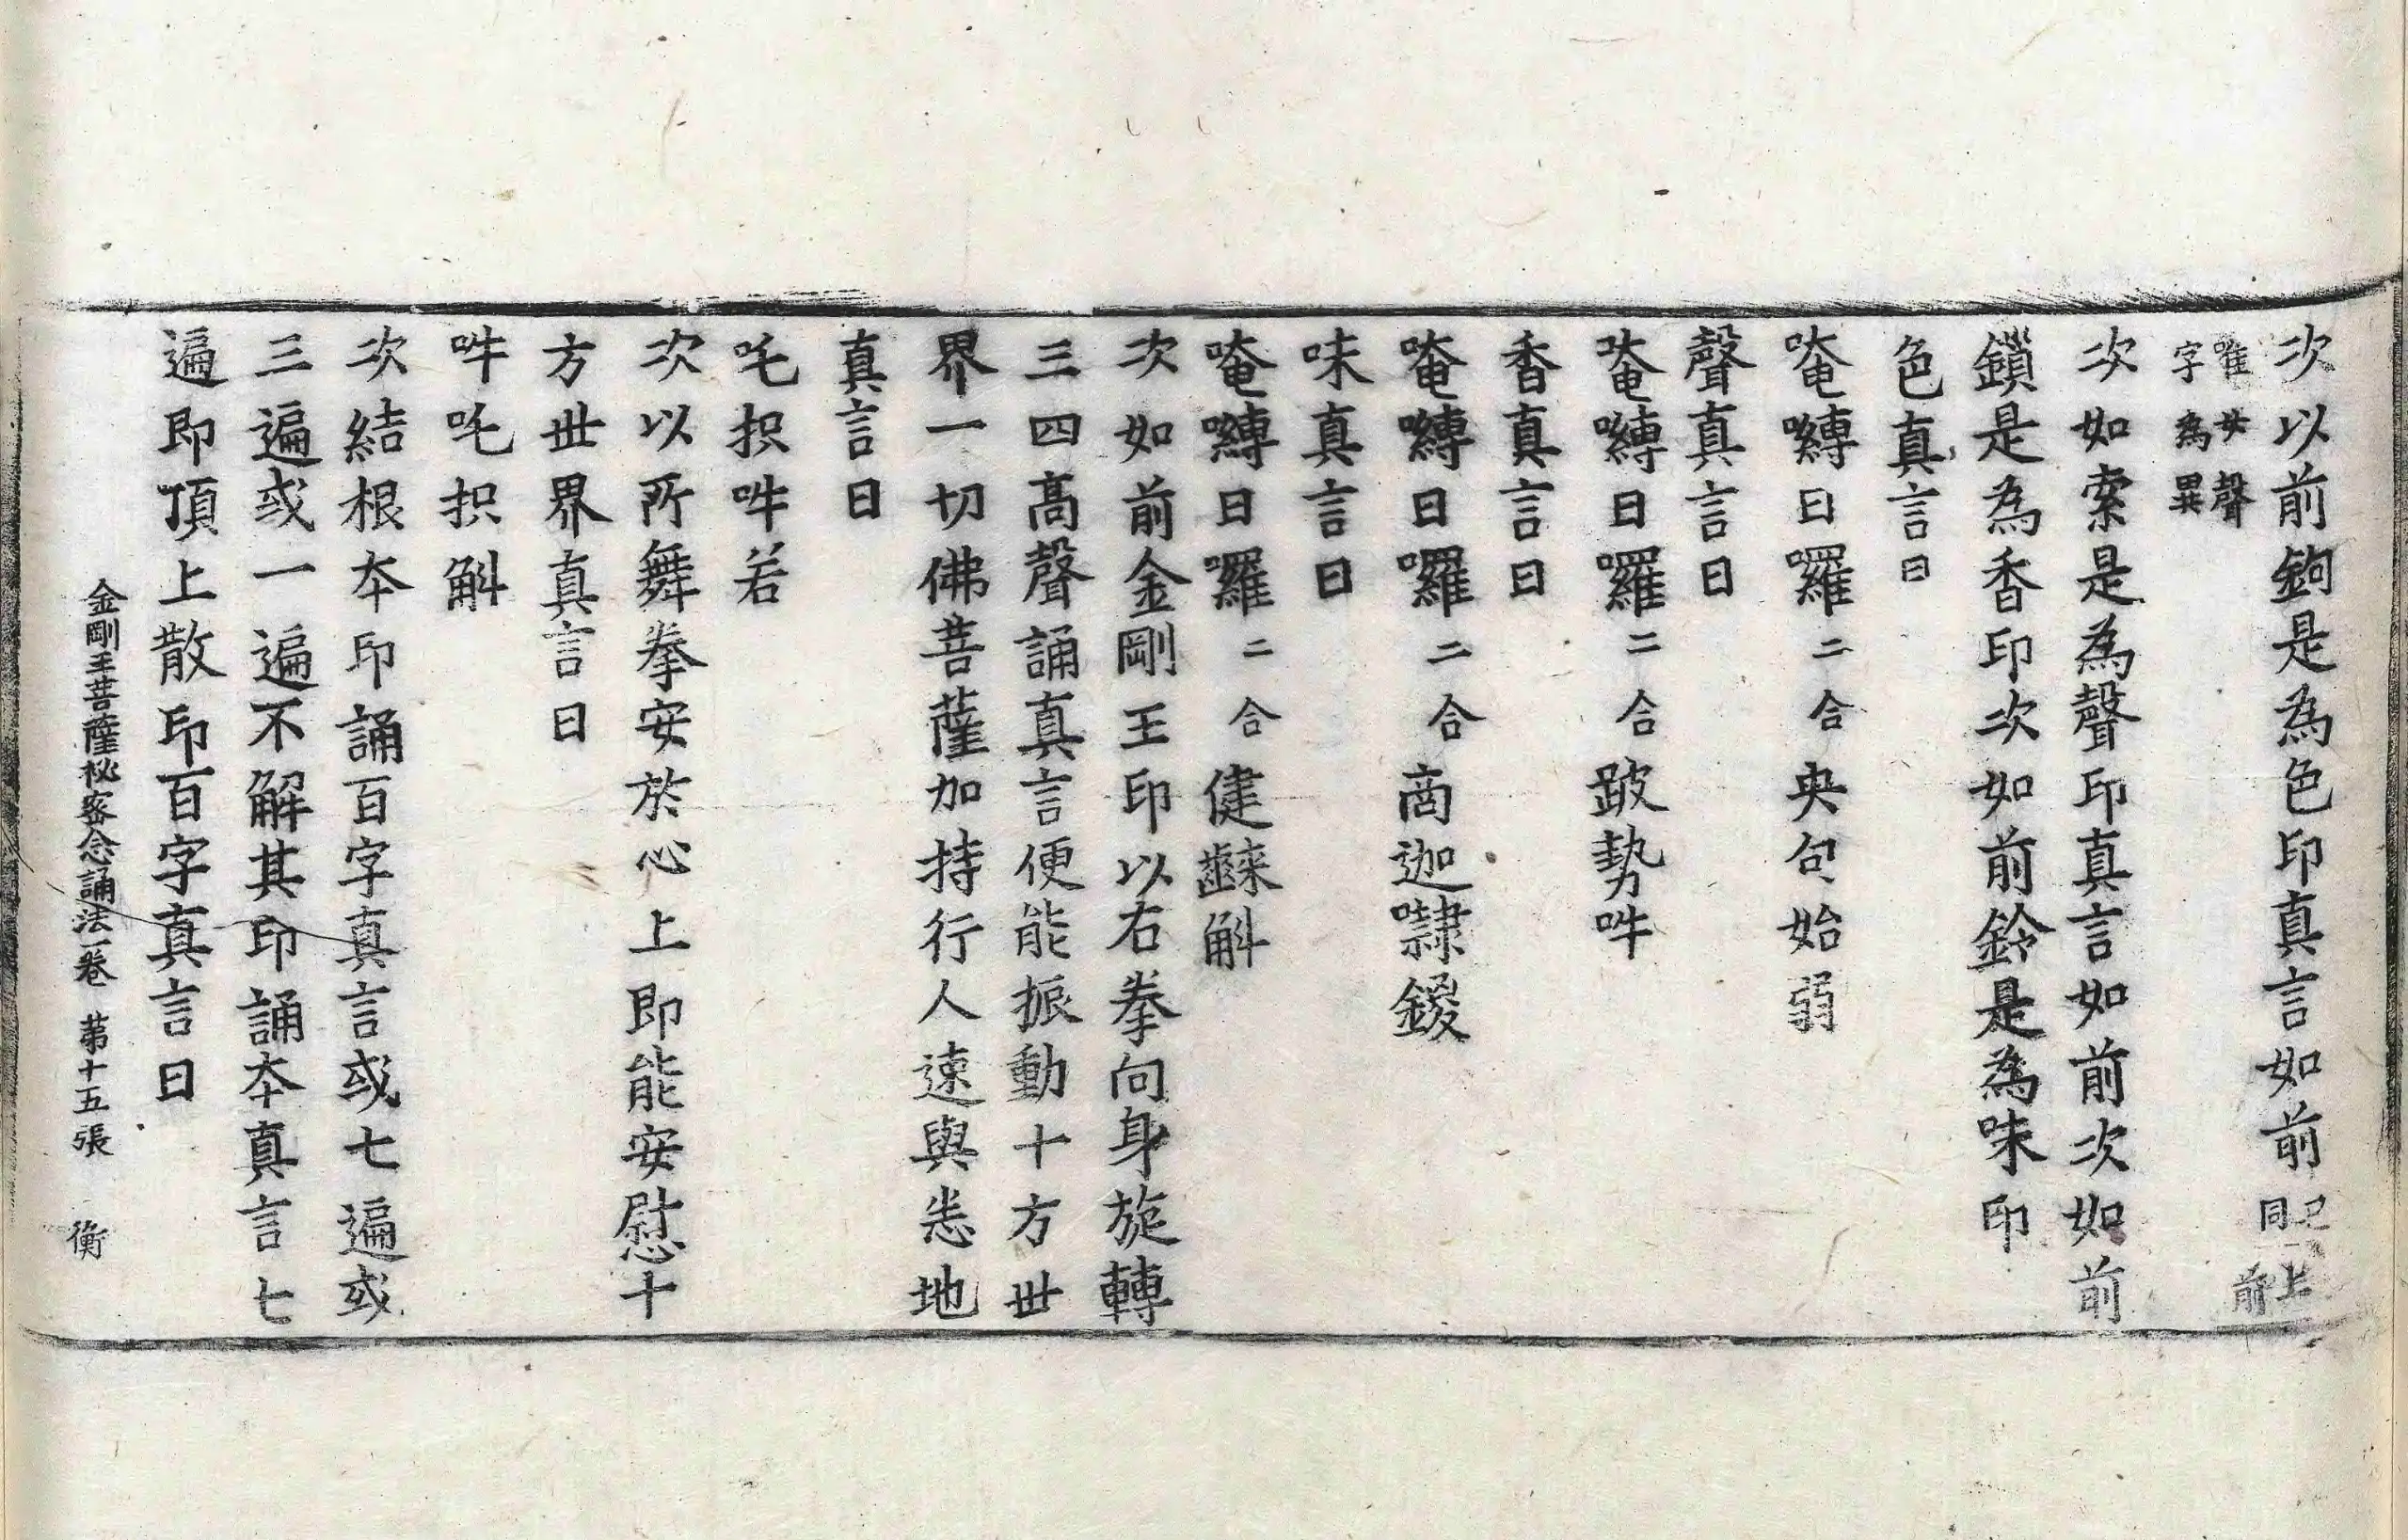 次以前鉤是為色印真言如前已上同前
唯安聲字為異
次如索是為聲印真言如前次如前
鎖是為香印次如前鈴是為味印
色真言曰
唵嚩日囉二合央句始弱
聲真言曰
唵嚩日囉二合跛勢吽
香真言曰
唵嚩日囉二合商迦㘑鍐
味真言曰
唵嚩日囉二合健齼斛
次如前金剛王印以右拳向身旋轉
三四高聲誦真言便能振動十方世
界一切佛菩薩加持行人速與悉地
真言曰
吒抧吽若
次以所舞拳安於心上即能安慰十
方世界真言曰
吽吒抧斛
次結根本印誦百字真言或七遍或
三遍或一遍不解其印誦本真言七
遍即頂上散印百字真言曰
金剛王菩薩秘密念誦法一卷 第十五張 衡